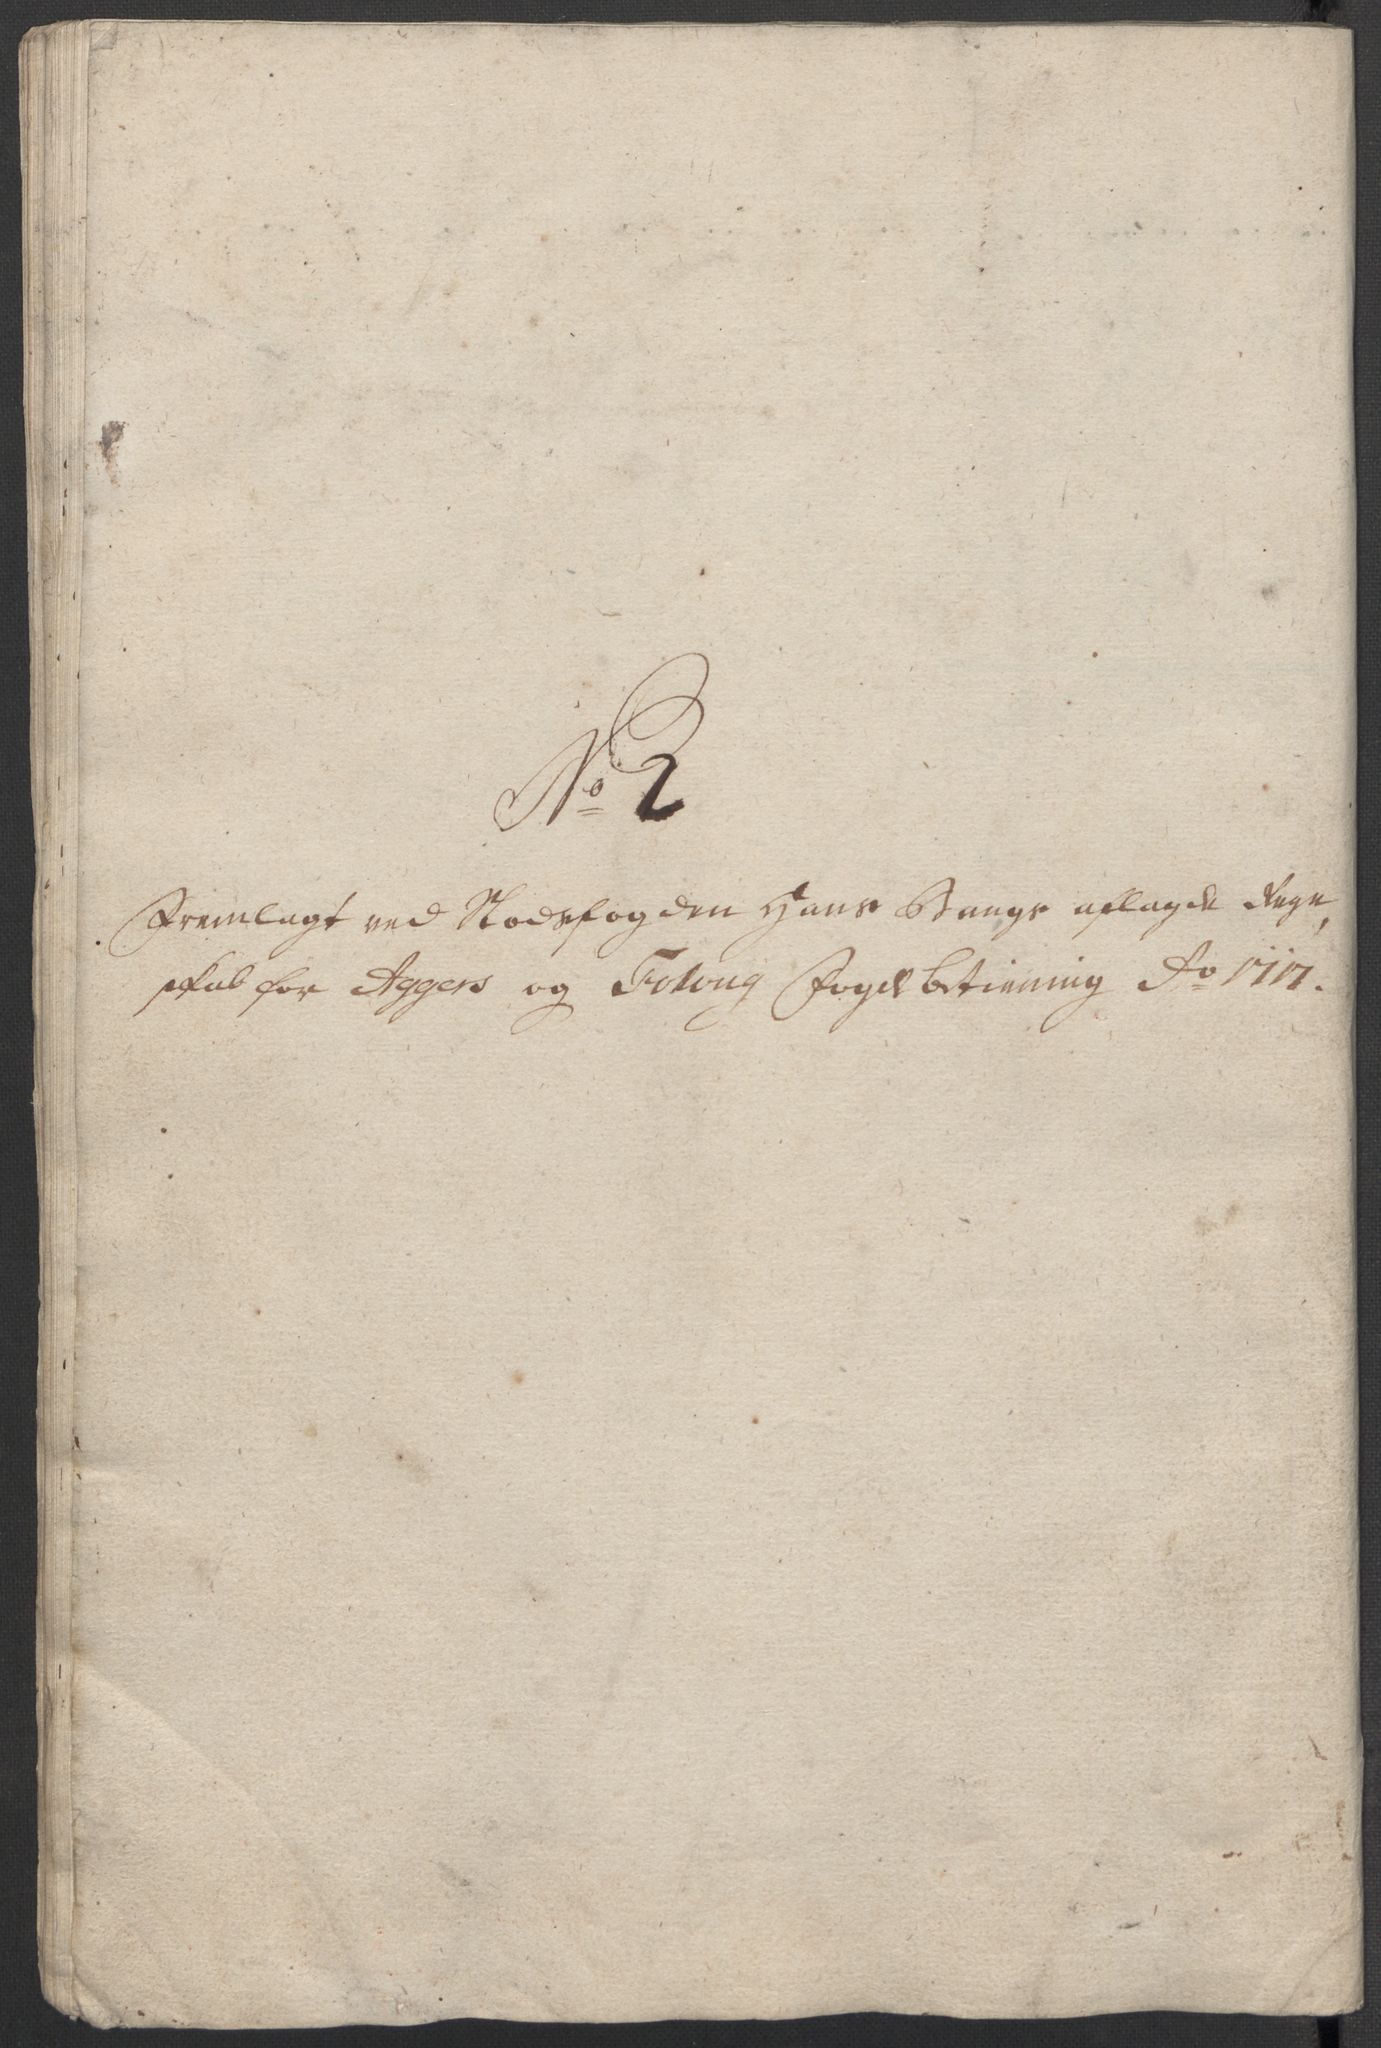 No 2
Fremlagt ved Stodsfogden Hans Bangs aflagde Regn,
skab for Aggers og Folloug Fogderbetiening Ao 1717.